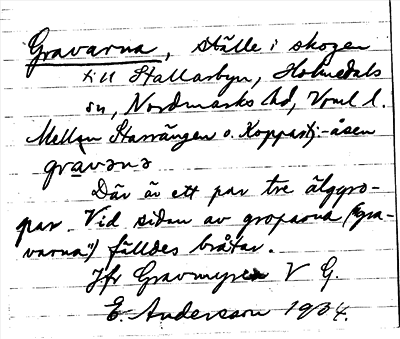 Gravarna, ställe i skogen
till Stallarbyn, Holmedals
sn, Nordmarks hd, Vrml l.
Mellan Starrängen o. Kopparåsen
gravəna
Där är ett par tre älggro-
par. Vid sidan av groparna ("gra-
varna") fälldes bråtar.
Jfr Gravmyren V G.
E. Andersson 1934.